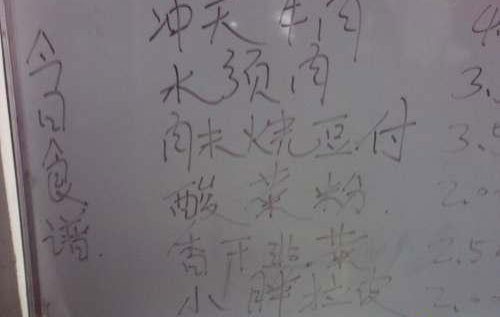 今日食谱
冲天牛肉 4.
水须肉 3.
肉末烧豆付 3.5
酸菜粉 2.0
香干韭菜 2.5
小胖拉皮 2.0